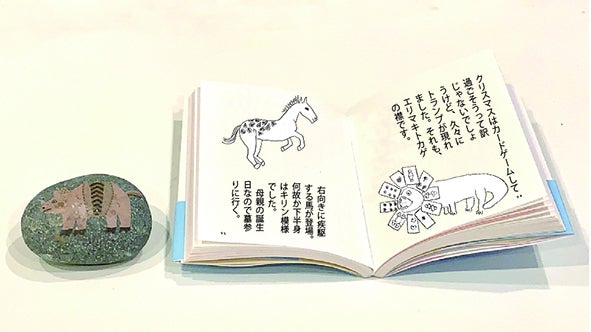 クリスマスはカードゲームして、
過ごそうって訳
じゃないでしょ
うけど、久々に
トランプが現れ
ました。それも、
エリマキトカゲ
の襟です。
右向きに疾駆
する馬が登場。
何故か下半身
はキリン模様
でした。
母親の誕生
日なので墓参
りに行く。